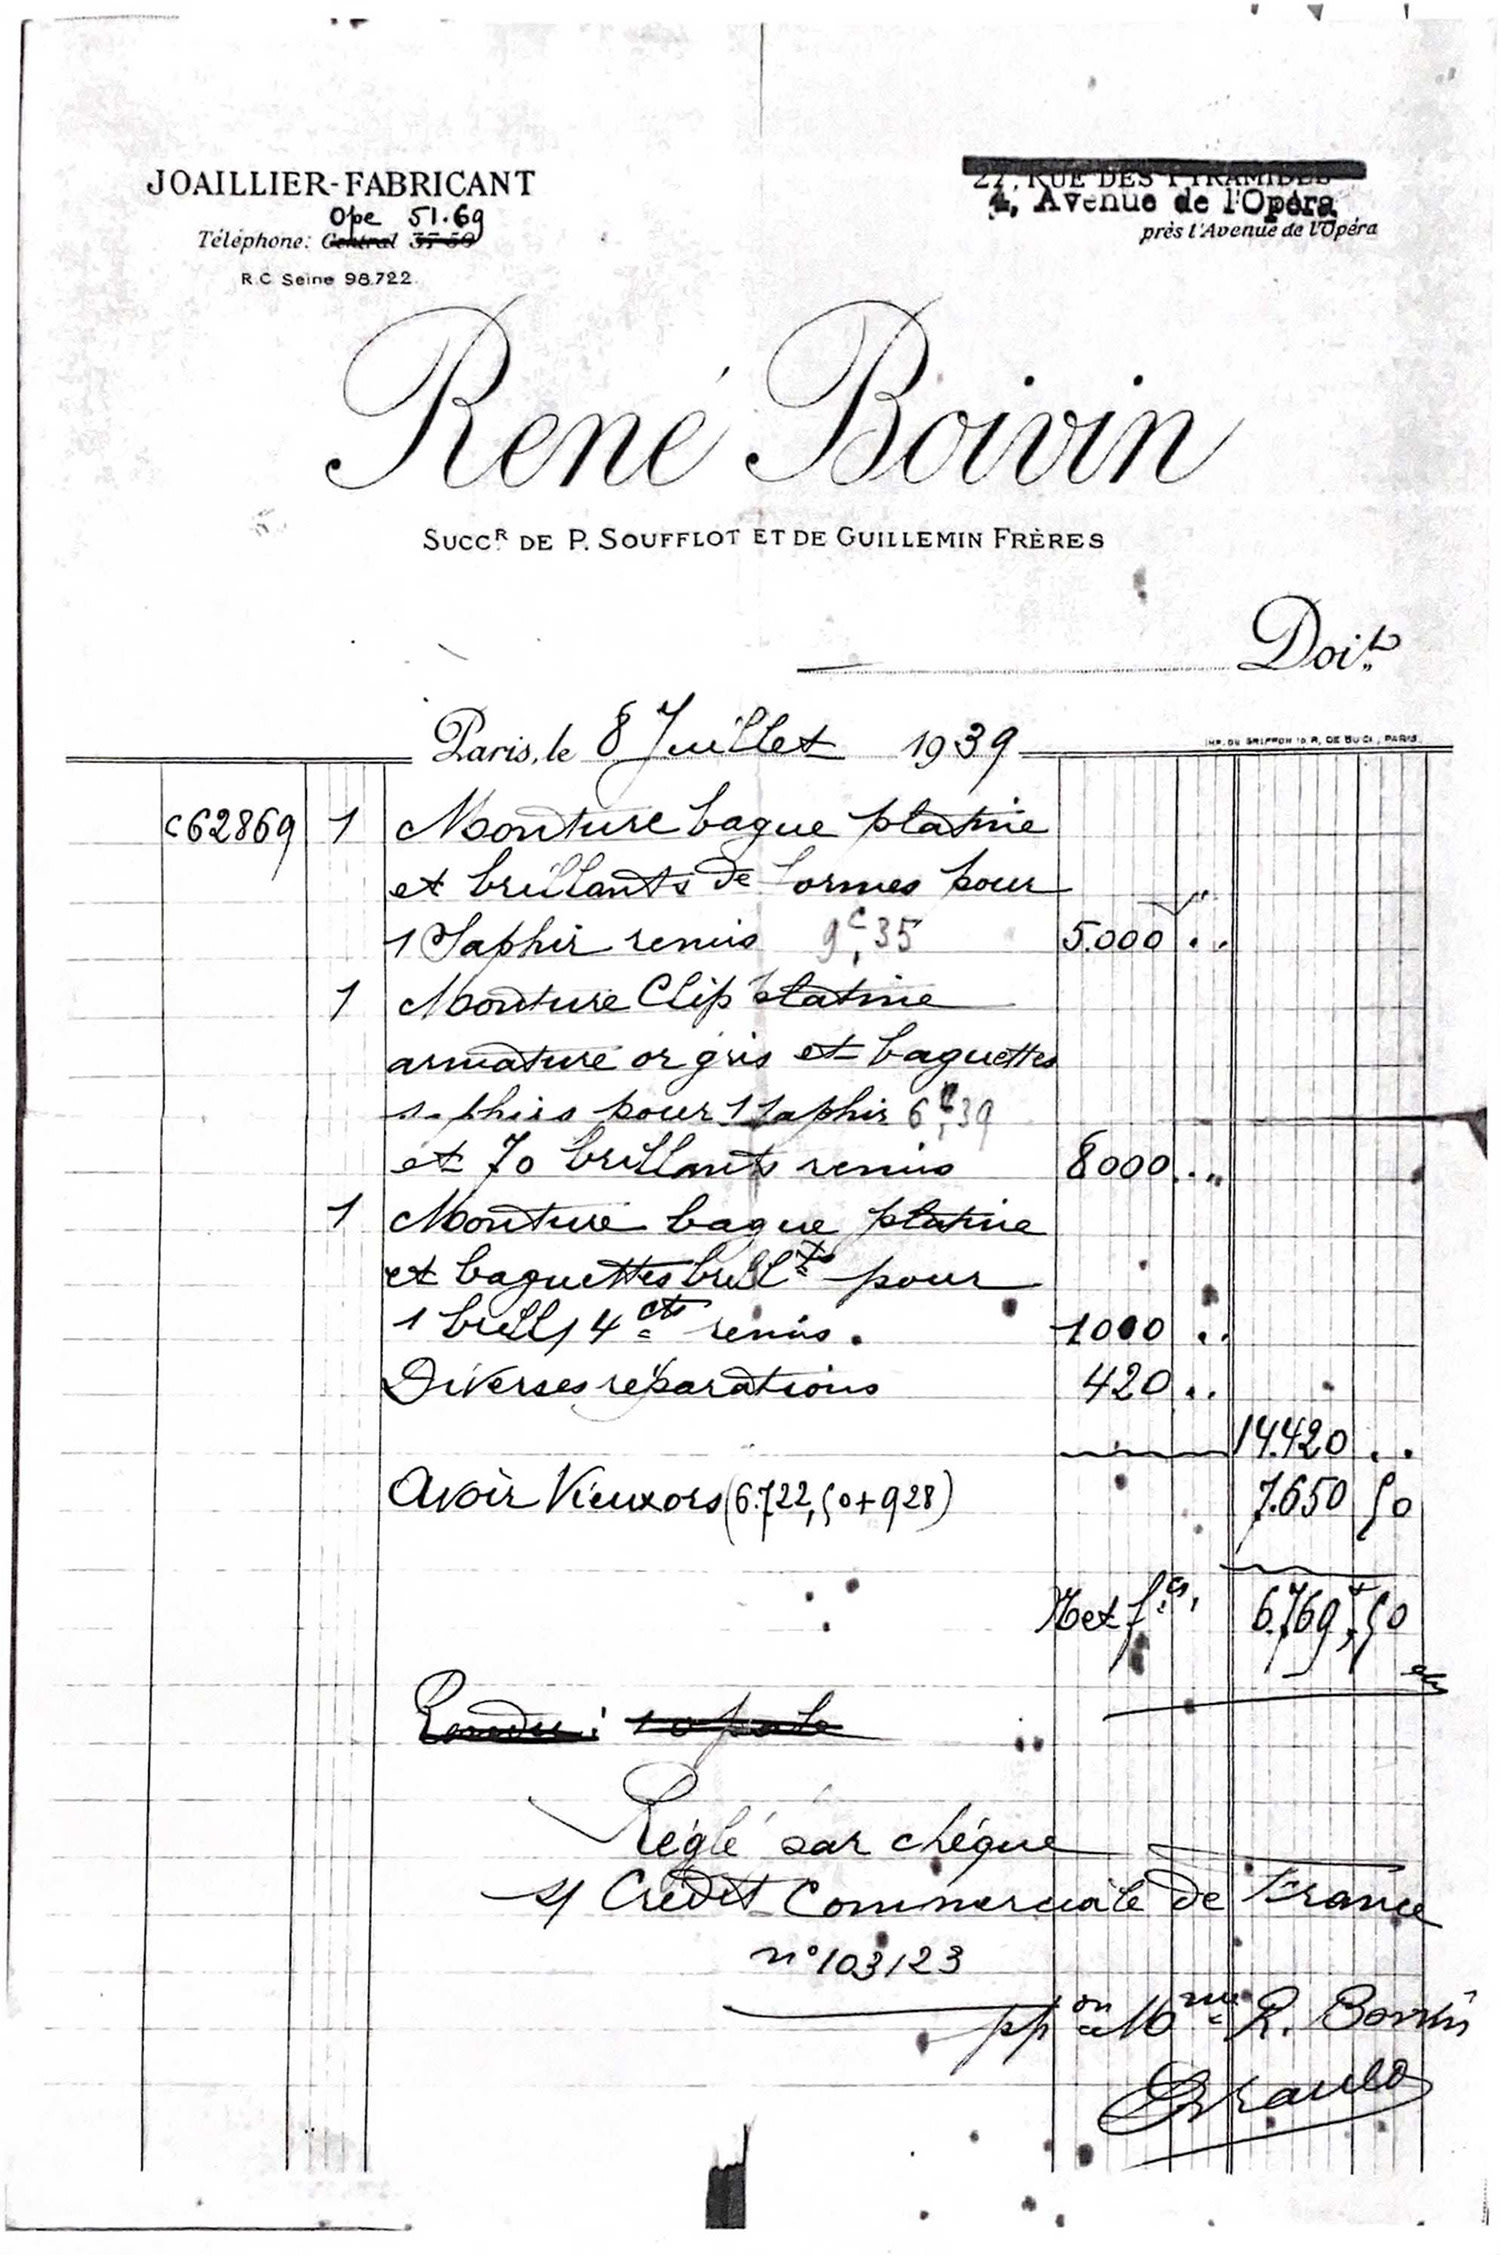 JOAILLIER-FABRICANT
Ope 51.69
Téléphone: Central 37-59
R.C. Seine 98.722
27, RUE DES PYRAMIDES
4, Avenue de l'Opéra
près l'Avenue de l'Opéra
René Boivin
SUCCR DE P. SOUFFLOT ET DE GUILLEMIN FRÈRES
Doit
Paris, le 8 Juillet 1939
IMP. DU GRIFFON 10 R. DE BUCI, PARIS
c62869 1 Monture bague platine
et brillants de formes pour
1 Saphir remis 9c,35 5.000 ..
1 Monture Clip platine
armature or gris et baguettes
saphirs pour 1 saphir 6c,39
et 70 brillants remis 8000 ..
1 Monture bague platine
et baguettes brillts pour
1 brill 4cts remis. 1000 ..
Diverses réparations 420 ..
14.420 ..
Avoir Vieux ors (6.722,50+928) 7.650 50
Net fcs. 6.769,50
Rendu:
Réglé par chèque
s/ Crédit Commerciale de France
n° 103123
ppon Mme R. Boivin